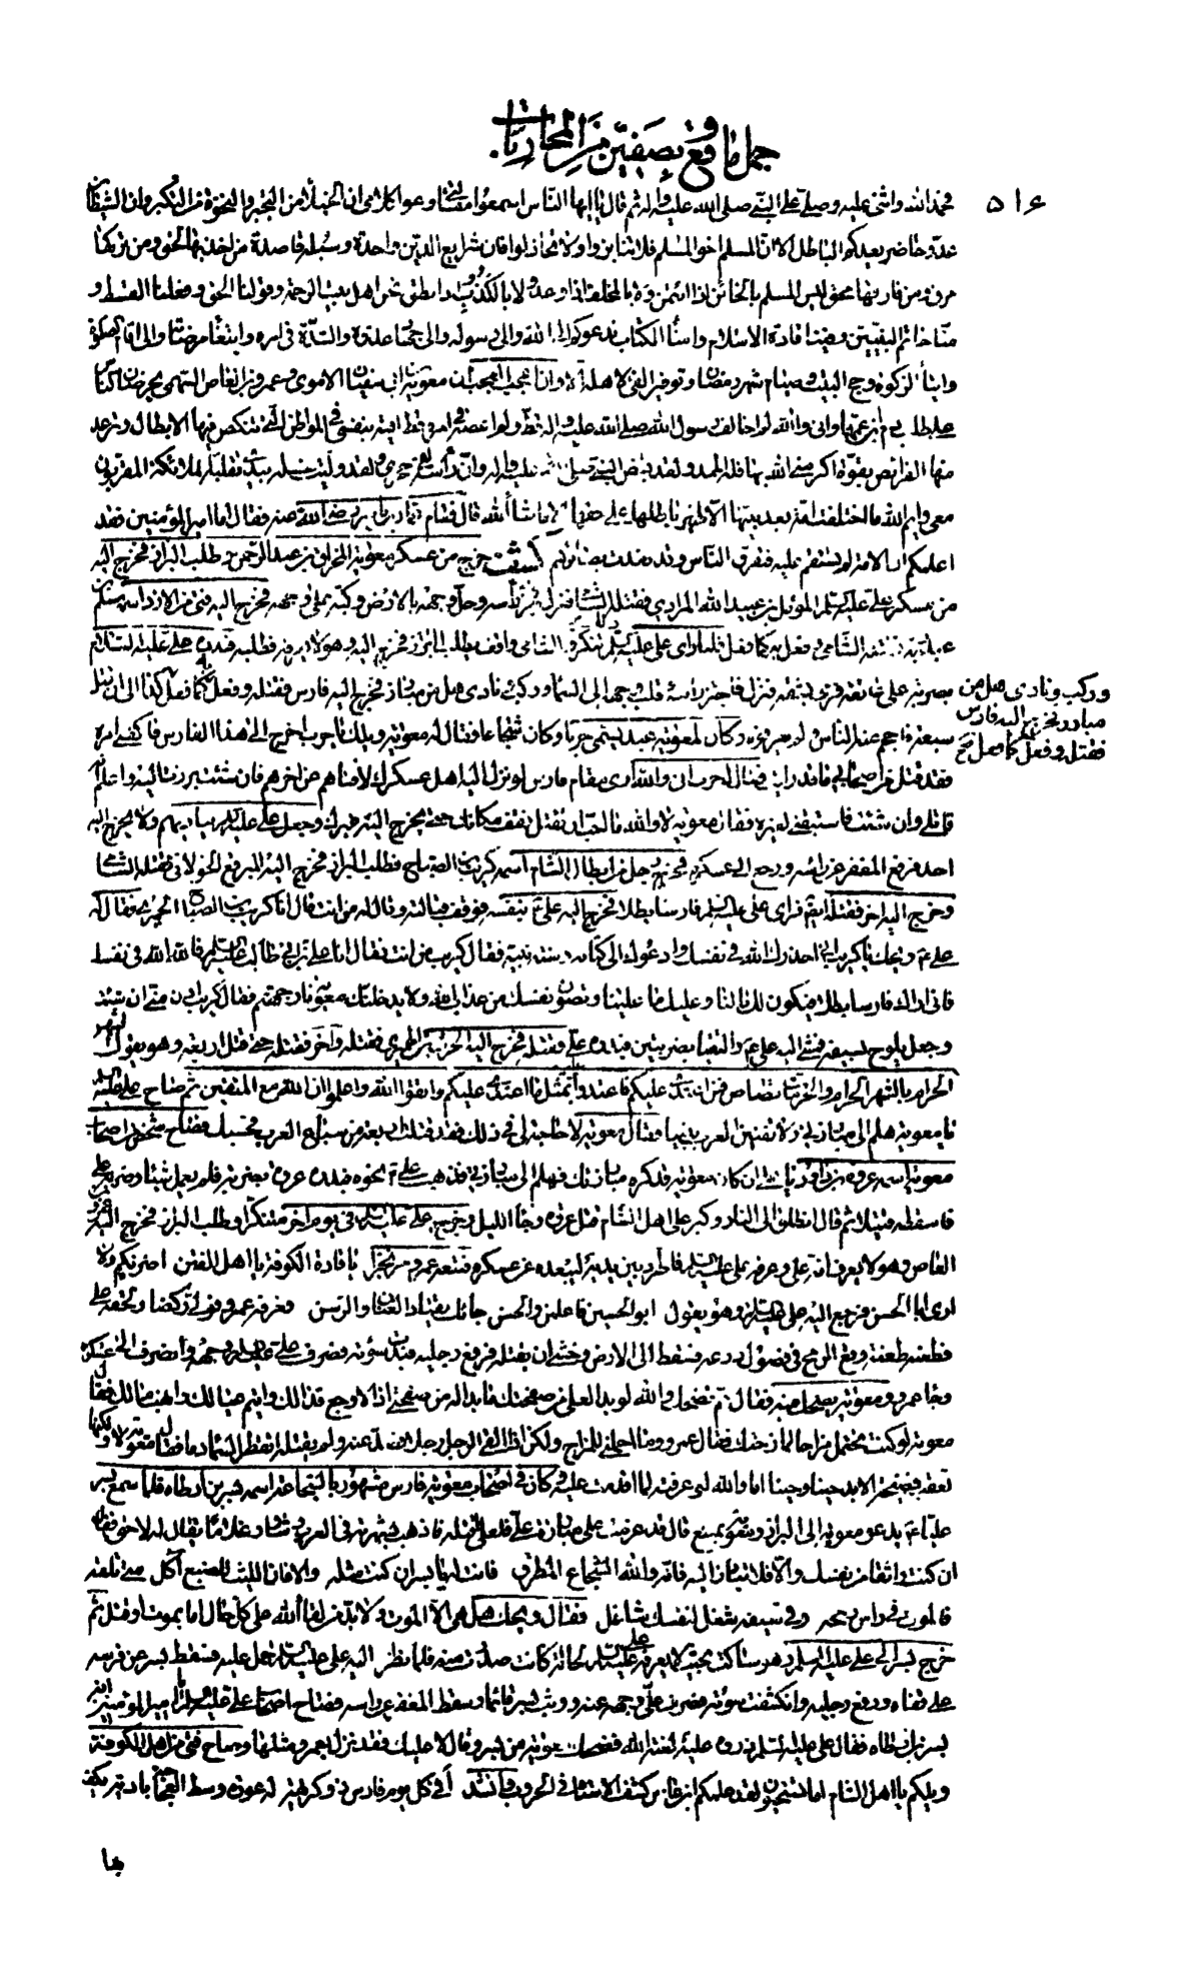 جمل ما وقع بصفين من المحاربات
٥١٤
فحمد الله واثنى عليه وصلى على النبي صلى الله عليه واله ثم قال يا ايها الناس اسمعوا مقالتي وعوا كلامي ان الخيلاء من التجبر والنخوة من التكبر وان الشيطان
عدو حاضر يعدكم الباطل الا ان المسلم اخو المسلم فلا تنابزوا ولا تخاذلوا فان شرايع الدين واحدة وسبله قاصدة من اخذ بها لحق ومن تركها
مرق ومن فارقها محق ليس المسلم بالخائن اذا ائتمن ولا بالمخلف اذا وعد ولا بالكذوب اذا نطق نحن اهل بيت الرحمة وقولنا الحق وفعلنا القسط و
منا خاتم النبيين وفينا قادة الاسلام وامناء الكتاب ندعوكم الى الله والى رسوله والى جهاد عدوه والشدة في امره وابتغاء مرضاته والى اقام الصلوة
وايتاء الزكوة وحج البيت وصيام شهر رمضان وتوفير الفيء لاهله الا وان اعجب العجب ان معوية بن ابي سفيان الاموي وعمرو بن العاص السهمي يحرضان الناس
على طلب دم ابن عمهما واني والله لم اخالف رسول الله صلى الله عليه واله قط ولم اعصه في امر قط اقيه بنفسي في المواطن التي تنكص فيها الابطال وترعد
منها الفرائص بقوة اكرمني الله بها فله الحمد ولقد قبض النبي صلى الله عليه واله وان رأسه لفي حجري ولقد وليت غسله بيدي تقلبه الملائكة المقربون
معي وايم الله ما اختلفت امة بعد نبيها الا ظهر باطلها على حقها الا ما شاء الله قال فقام عمار بن ياسر رضي الله عنه فقال اما امير المؤمنين فقد
اعلمكم ان الامة لم تستقم عليه فتفرق الناس وقد نفذت بصائرهم كشف خرج من عسكر معوية المخراق بن عبد الرحمن وطلب البراز فخرج اليه
من عسكر علي عليه السلم المؤمل بن عبيد الله المرادي فقتله الشامي فنزل فجز رأسه وحك وجهه بالارض وكبه على وجهه فخرج اليه فتى من الازد اسمه مسلم بن
فقتله الشامي وفعل به كما فعل فلما راى علي عليه السلم ذلك تنكر والشامي واقف يطلب البراز فخرج اليه وهو لا يعرفه فطلبه فبدره علي عليه السلام
بضربة على عاتقه فرمى بشقه فنزل فاجتز راسه وقلب وجهه الى السماء وركب ونادى هل من مبارز فخرج اليه فارس فقتله وفعل به كما فعل كذا الى ان قتل
وركب ونادى هل من
مبارز فخرج اليه فارس
فقتله وفعل كما فعل صح
سبعة فاحجم عنه الناس ولم يعرفوه وكان لمعوية عبد يسمى حربا وكان شجاعا فقال له معوية ويلك يا حرب اخرج الى هذا الفارس فاكفني امره
فقد قتل من اصحابي ما قد رايت فقال له حرب اني والله ارى مقام فارس لو نزل اليه اهل عسكرك لافناهم عن اخرهم فان شئت برزت اليه واعلم انه
قاتلي وان شئت فاستبقني لغيره فقال معوية لا والله ما احب ان تقتل فقف مكانك حتى يخرج اليه غيرك وجعل علي عليه السلم يناديهم ولا يخرج اليه
احد فرفع المغفر عن راسه ورجع الى عسكره فخرج رجل من ابطال الشام اسمه كريب بن الصباح فطلب البراز فخرج اليه المبرقع الخولاني فقتله الشامي
وخرج اليه اخر فقتله ايضا فراى علي عليه السلم فارسا بطلا فخرج اليه علي ع بنفسه فوقف قبالته وقال له من انت قال انا كريب بن الصباح الحميري فقال له
علي ع ويحك يا كريب اني احذرك الله في نفسك وادعوك الى كتابه وسنة نبيه فقال كريب من انت فقال انا علي بن ابي طالب عليه السلم فالله الله في نفسك
فاني اراك فارسا بطلا فيكون لك ما لنا وعليك ما علينا وتصون نفسك من عذاب الله ولا يدخلنك معوية نار جهنم فقال كريب ادن مني ان شئت
وجعل يلوح بسيفه فمشى اليه علي ع والتقيا بضربتين فبدره علي فقتله فخرج اليه الحرث الحميري فقتله واخر فقتله حتى قتل اربعة وهو يقول الشهر
الحرام بالشهر الحرام والحرمات قصاص فمن اعتدى عليكم فاعتدوا بمثل ما اعتدى عليكم واتقوا الله واعلموا ان الله مع المتقين ثم صاح علي عليه السلم
يا معوية هلم الى مبارزتي ولا تفنين العرب بيننا فقال معوية لا حاجة لي في ذلك فقد قتلت اربعة من سباع العرب فحسبك فصاح شخص من اصحاب
معوية اسمه عروة بن داود يا علي ان كان معوية قد كره مبارزتك فهلم الى مبارزتي فذهب علي ع نحوه فبدره عروة بضربة فلم يعمل شيئا وضربه علي
فاسقطه قتيلا ثم قال انطلق الى النار وكبر على اهل الشام قتل عروة وجاء الليل وخرج علي عليه السلم في يوم اخر متنكرا وطلب البراز فخرج اليه عمرو بن
العاص وهو لا يعرف انه علي وعرفه علي عليه السلم فاطرد بين يديه ليبعده عن عسكره فتبعه عمرو مرتجزا يا قادة الكوفة يا اهل الفتن اضربكم ولا
ارى ابا الحسن فرجع اليه علي عليه السلم وهو يقول ابو الحسين فاعلمن والحسن جائك يقتاد العنان والرسن فعرفه عمرو فولى ركضا ولحقه علي
فطعنه طعنة وقع الرمح في فضول درعه فسقط الى الارض وخشي ان يقتله فرفع رجليه فبدت سوءته فصرف علي ع وجهه وانصرف الى عسكره
وجاء عمرو ومعوية يضحك منه فقال مم تضحك والله لو بدا لعلي من صفحتك ما بدا له من صفحتي اذا لاوجع قذالك وايتم عيالك وانهب مالك فقال
معوية لو كنت تحتمل مزاحا لمازحتك فقال عمرو وما احملني للمزاح ولكن اذا لقي الرجل رجلا فصد عنه ولم يقتله اتقطر السماء دما فقال معوية لا ولكنها
تعقب فضيحة الابد حينا وحينا اما والله لو عرفته لما اقدمت عليه وكان في اصحاب معوية فارس مشهور بالشجاعة اسمه بسر بن ارطاة فلما سمع بسر
عليا ع يدعو معوية الى البراز ومعوية يمتنع قال قد عزمت على مبارزة علي فلعلي اقتله فاذهب بشهرته في العرب وشاور غلاما يقال له لاحق فقال
ان كنت واثقا من نفسك والا فلا تبرز اليه فانه والله الشجاع المطرق فانت له يا بسر ان كنت مثله والا فان الليث للضبع اكل متى تلقه
فالموت في راس رمحه وفي سيفه شغل لنفسك شاغل فقال ويحك هل هي الا الموت ولا بد من لقاء الله على كل حال اما بموت او قتل ثم
خرج بسر الى علي عليه السلم وهو ساكت بحيث لا يعرفه علي عليه السلم لحالة كانت صدرت منه فلما نظر اليه علي عليه السلم حمل عليه فسقط بسر عن فرسه
على قفاه ورفع رجليه وانكشفت سوءته فصرف علي وجهه عنه ووثب بسر قائما وسقط المغفر عن راسه فصاح اصحاب علي عليه السلم يا امير المؤمنين انه
بسر بن ارطاة فقال علي عليه السلم ذروه عليه لعنة الله فضحك معوية من بسر وقال لا عليك فقد نزل بعمرو مثلها وصاح فتى من اهل الكوفة
ويلكم يا اهل الشام اما تستحيون لقد علمكم ابن العاص كشف الاستاه في الحروب وانشد أفي كل يوم فارس ذو كريهة له عورة وسط العجاجة بادية يكف
بها